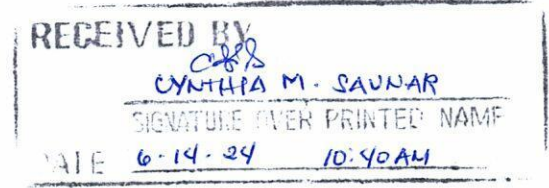 RECEIVED BY
CYNTHIA M. SAVNAR
SIGNATURE OVER PRINTED NAME
DATE 6-14-24 10:40AM